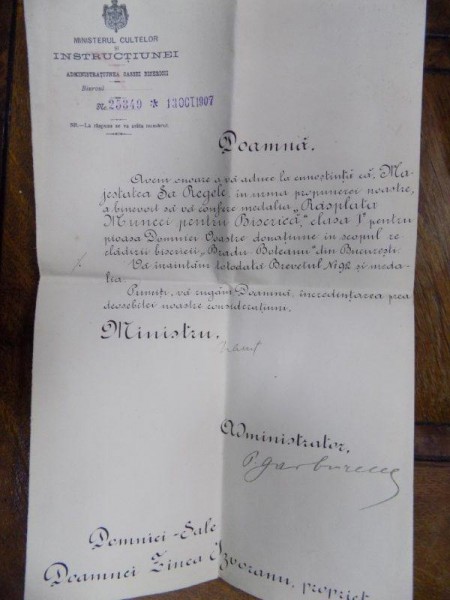 MINISTERUL CULTELOR
ȘI
INSTRUCȚIUNEI
ADMINISTRAȚIUNEA CASEI BISERICII
Biuroul
No. 23349 * 13 OCT. 1907
NB.—La răspuns se va arăta numărul.
Doamnă.
Avem onoare a vă aduce la cunoștință că, Ma-
jestatea Sa Regele, in urma propunerei noastre,
a binevoit să vă confere medalia „Răsplata
Muncei pentru Biserică,” clasa I pentru
pioasa Domniei Voastre donațiune în scopul re-
clădirii bisericii „Bradu Boteanu” din București.
Vă inaintăm totodată Brevetul No 92 și meda-
lia.
Primiți, vă rugăm Doamnă, incredințarea prea
deosebitei noastre considerațiuni.
Ministru,
Administrator,
Domniei-Sale
Doamnei Zinca Izvoranu, propriet